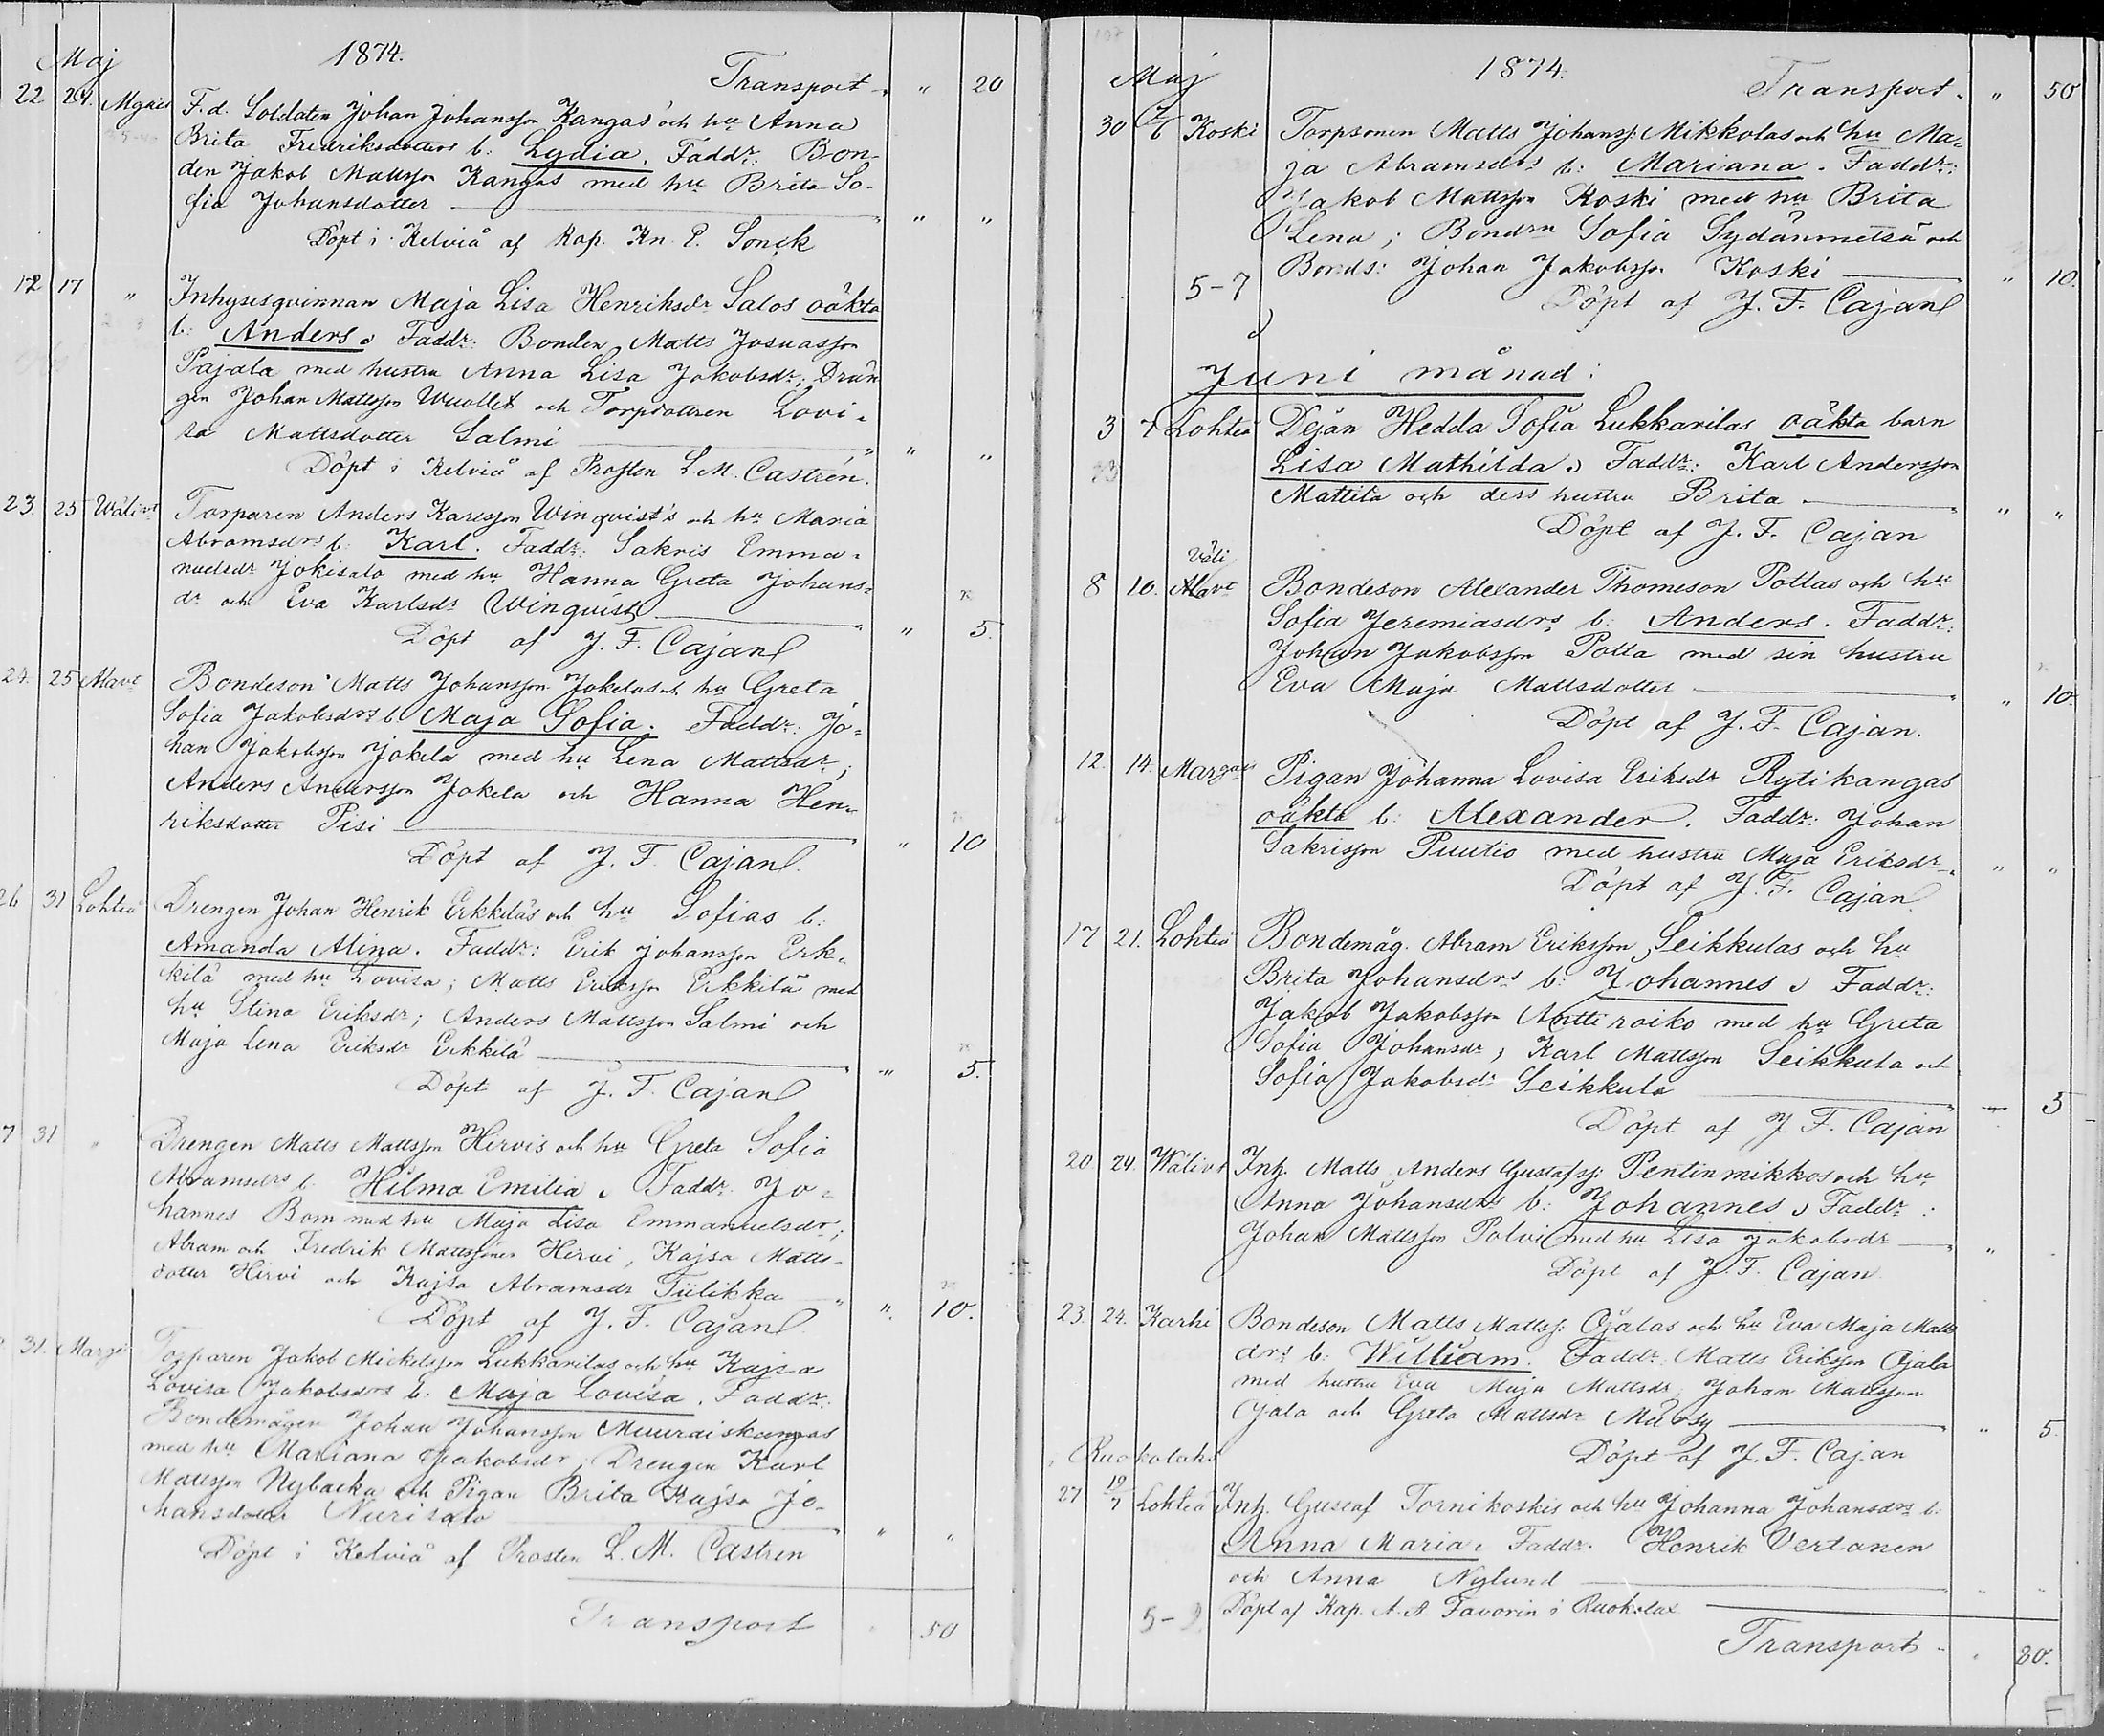 Maj 1874. Transport " 20
22 24. F. d. Soldaten Johan Johansson Kangas och hu Anna
Brita Fredriksdotters b: Lydia. Faddr: Bon-
den Jakob Mattsson Kangas med hu Brita So-
fia Johansdotter " "
Döpt i Kelviå af Kap. Kn. E. Sonck
12 17 " Inhysesqvinnan Maja Lisa Henriksdr Salos oäkta
b: Anders, Faddr: Bonden Matts Josuasson
Pajala med hustru Anna Lisa Jakobsdr; Drän
gen Johan Mattsson Wuollet och Torpdottren Lovi-
sa Mattsdotter Salmi " "
Döpt i Kelviå af Prosten L. M. Castrén.
23. 25 Wälivt Torparen Anders Karlsson Winqvist's och hu Maria
Abramsdrs b: Karl. Faddr: Sakris Emma-
nuelsdr Jokisalo med hu Hanna Greta Johans-
dr och Eva Karlsdr Winqvist " 5.
Döpt af J. F. Cajan
24. 25 Alavt Bondeson Matts Johansson Jokelas och hu Greta
Sofia Jakobsdrs b. Maja Sofia. Faddr: Jo-
han Jakobsson Jokela med hu Lena Mattsdr;
Anders Andersson Jokela och Hanna Hen-
riksdotter Pisi " 10
Döpt af J. F. Cajan.
26 31 Lohteå Drengen Johan Henrik Erkkiläs och hu Sofias b:
Amanda Alina. Faddr: Erik Johansson Erk-
kilä med hu Lovisa; Matts Eriksson Erkkilä med
hu Stina Eriksdr; Anders Mattsson Salmi och
Maja Lena Eriksdr Erkkilä " 5.
Döpt af J. F. Cajan
7 31 " Drengen Matts Mattsson Hirvis och hu Greta Sofia
Abramsdrs b. Hilma Emilia. Faddr. Jo-
hannes Bom med hu Maja Lisa Emmanuelsdr;
Abram och Fredrik Mattssöner Hirvi, Kajsa Matts-
dotter Hirvi och Kajsa Abramsdr Tiilikka " 10.
Döpt af J. F. Cajan.
31. Marg. Torparen Jakob Mickelsson Lukkarilas och hu Kajsa
Lovisa Jakobsdrs b. Maja Lovisa. Faddr:
Bondemågen Johan Johansson Muuraiskangas
med hu Mariana Jakobsdr, Drengen Karl
Mattsson Nybacka och Pigan Brita Kajsa Jo-
hansdotter Niirisalo " "
Döpt i Kelviå af Prosten L. M. Castren
Transport " 50
107
Maj 1874. Transport " 50
30 7/6 Koski Torpsonen Matts Johanss: Mikkolas och hu Ma-
ja Abramsdrs b: Mariana. Faddr:
Jakob Mattsson Koski med hu Brita
Lena; Bondru Sofia Sydänmetsä och
Bonds: Johan Jakobsson Koski " 10.
5-7 Döpt af J. F. Cajan
Juni månad:
3 7 Lohteå Dejan Hedda Sofia Lukkarilas oäkta barn
Lisa Mathilda, Faddr: Karl Andersson
Mattila och dess hustru Brita " "
Döpt af J. F. Cajan
Väli
8 10. Alavt Bondeson Alexander Thomeson Pottas och hu
Sofia Jeremiasdrs b: Anders. Faddr:
Johan Jakobsson Potta med sin hustru
Eva Maja Mattsdotter " 10.
Döpt af J. F. Cajan.
12. 14. Pigan Johanna Lovisa Eriksdr Rytikangas
oäkta b: Alexander. Faddr: Johan
Sakrisson Puutio med hustru Maja Eriksdr " "
Döpt af J. F. Cajan
17 21. Lohteå Bondemåg. Abram Eriksson Seikkulas och hu
Brita Johansdrs b: Johannes, Faddr:
Jakob Jakobsson Anttiroiko med hu Greta
Sofia Johansdr, Karl Mattsson Seikkula och
Sofia Jakobsdr Seikkula 5
Döpt af J. F. Cajan
20 24. Wälivt Inh. Matts Anders Gustafss: Pentinmikkos och hu
Anna Johansdrs b: Johannes, Faddr:
Johan Mattsson Polvi med hu Lisa Jakobsdr "
Döpt af J. F. Cajan
23. 24. Karhi Bondeson Matts Mattss: Ojalas och hu Eva Maja Matts
drs b: William. Faddr: Matts Eriksson Ojala
med hustru Eva Maja Mattsdr; Johan Mattsson
Ojala och Greta Mattsdr " 5.
Döpt af J. F. Cajan
Ruokolaks
27 19/7 Lohteå Inh. Gustaf Tornikoskis och hu Johanna Johansdrs b:
Anna Maria. Faddr. Henrik Vertanen
och Anna Nylund " "
Döpt af Kap. A. A. Favorin i Ruokolax
5-9
Transport " 80.